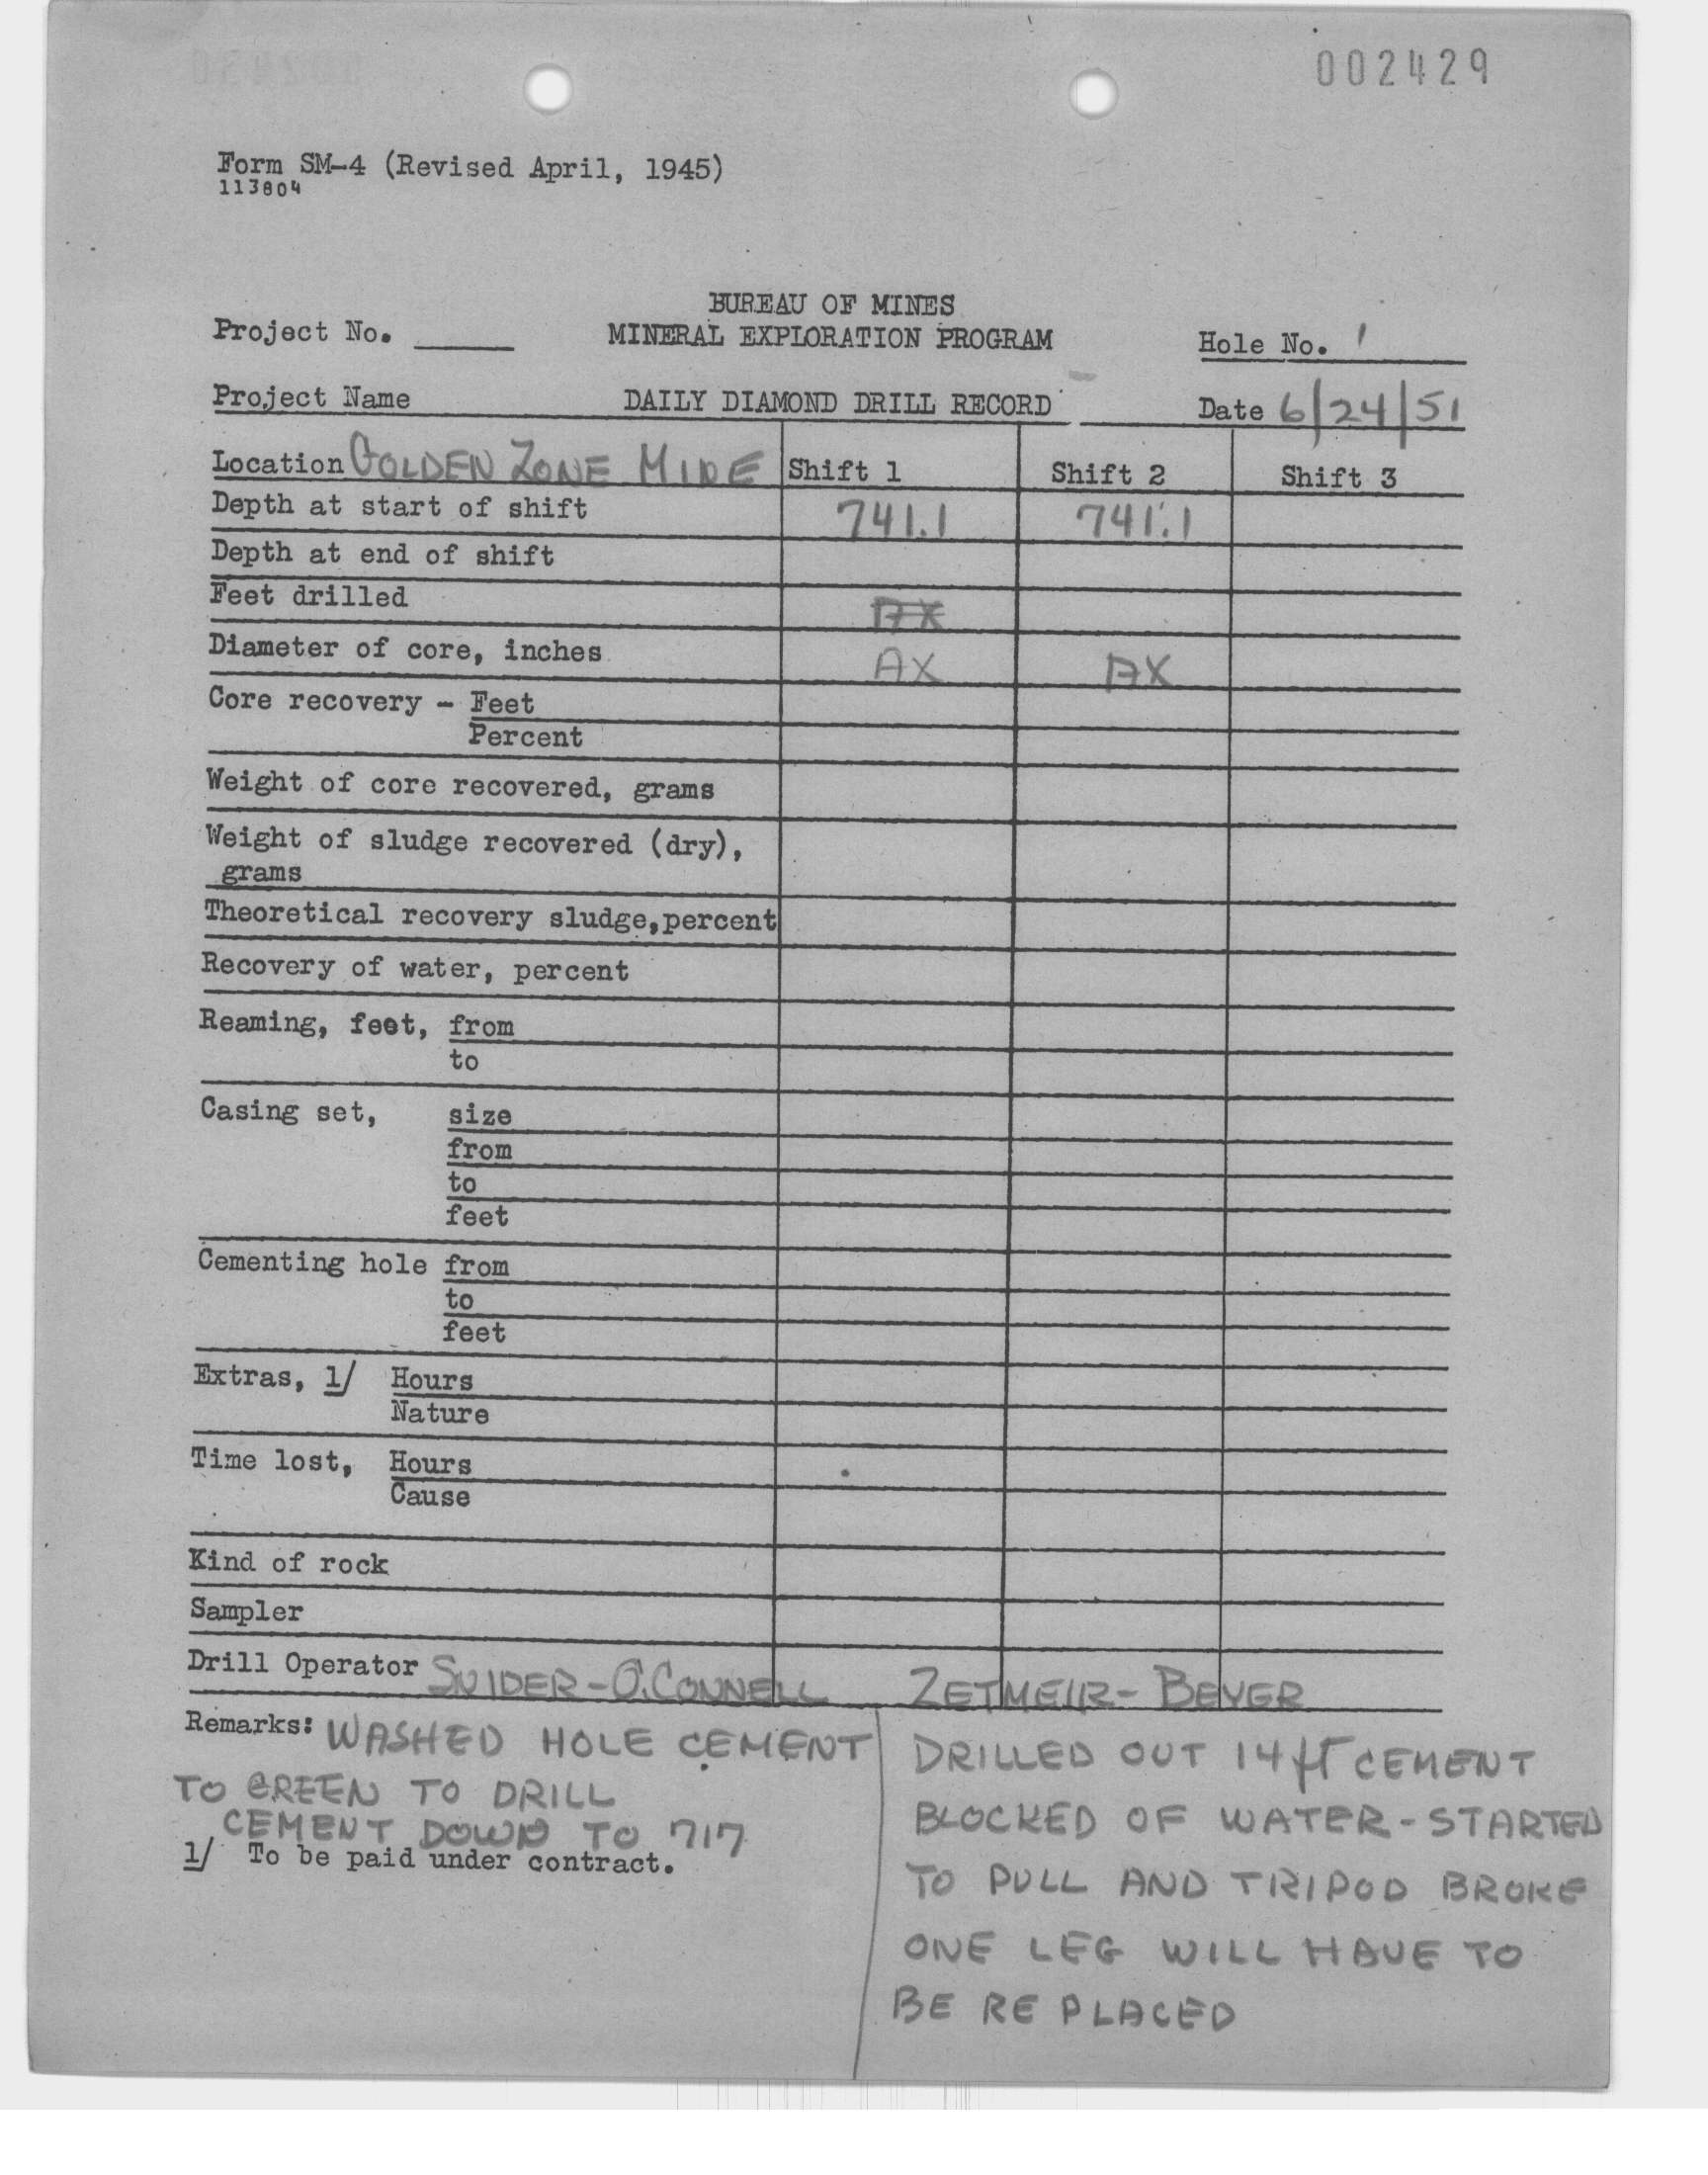 002429
Form SM-4 (Revised April, 1945)
113804
BUREAU OF MINES
Project No. MINERAL EXPLORATION PROGRAM Hole No. 1
Project Name DAILY DIAMOND DRILL RECORD Date 6/24/51
Location GOLDEN ZONE MINE Shift 1 Shift 2 Shift 3
Depth at start of shift 741.1 741.1
Depth at end of shift
Feet drilled AX
Diameter of core, inches AX AX
Core recovery - Feet
Percent
Weight of core recovered, grams
Weight of sludge recovered (dry),
grams
Theoretical recovery sludge, percent
Recovery of water, percent
Reaming, feet, from
to
Casing set, size
from
to
feet
Cementing hole from
to
feet
Extras, 1/ Hours
Nature
Time lost, Hours
Cause
Kind of rock
Sampler
Drill Operator SNIDER-O'CONNELL ZETMEIR-BEYER
Remarks: WASHED HOLE CEMENT
TO GREEN TO DRILL
CEMENT DOWN TO 717
1/ To be paid under contract.
DRILLED OUT 14 ft CEMENT
BLOCKED OF WATER-STARTED
TO PULL AND TRIPOD BROKE
ONE LEG WILL HAVE TO
BE RE PLACED